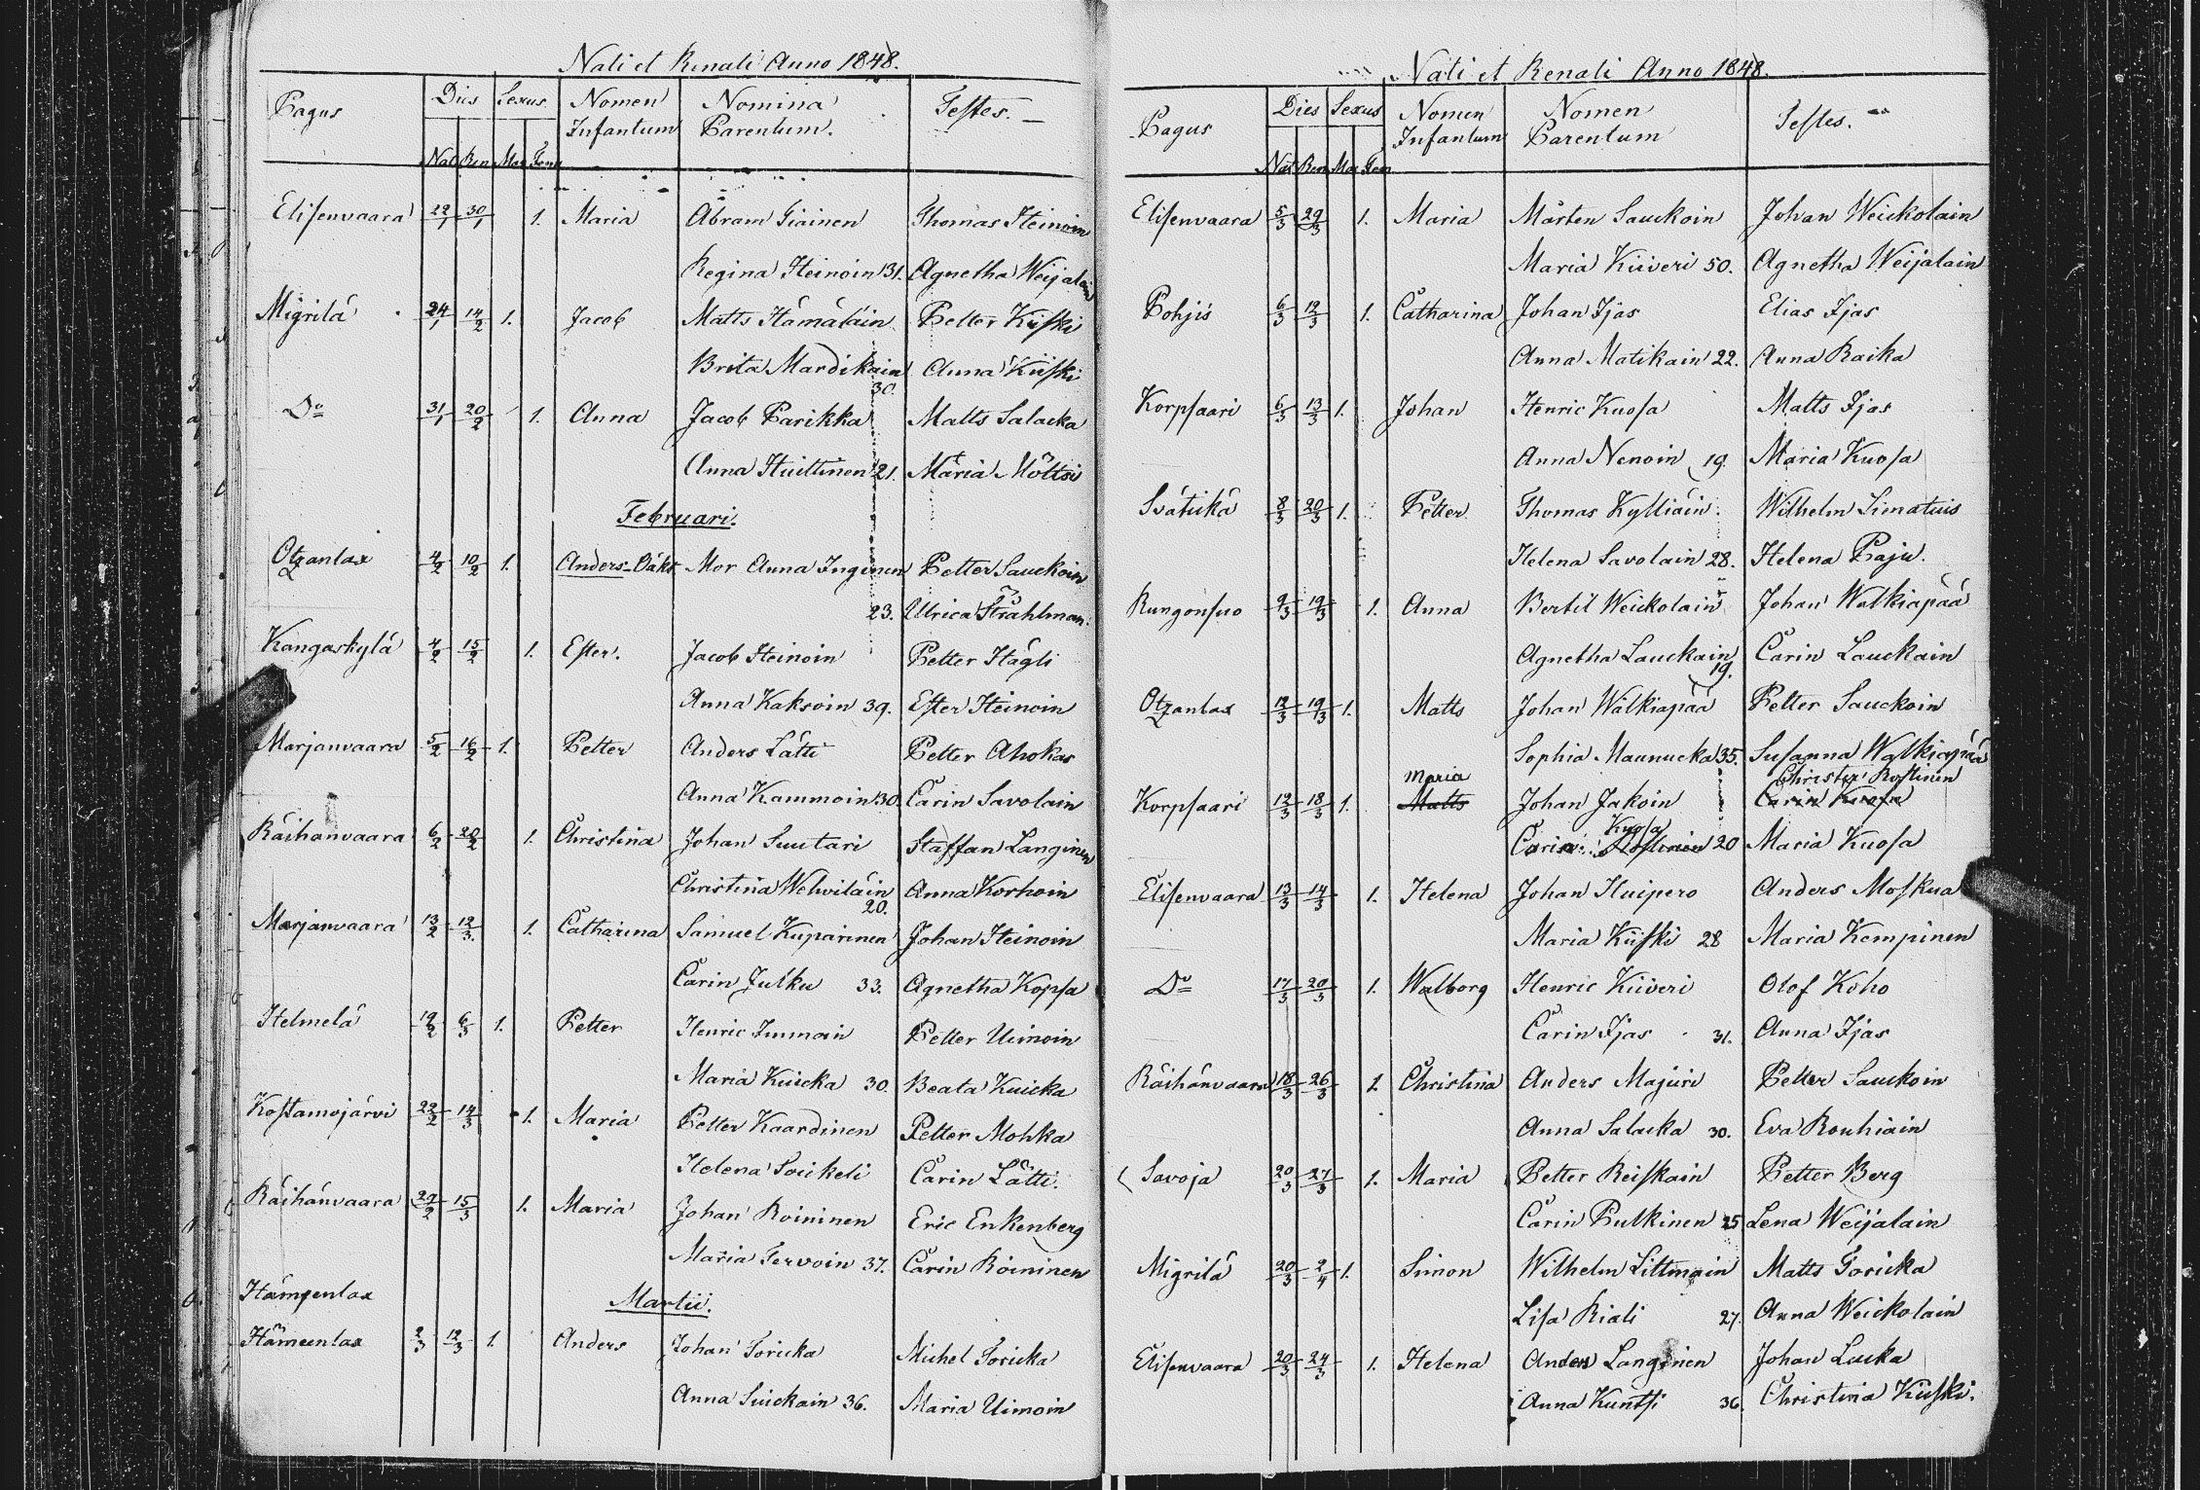 Nati et Renati Anno 1848.
Pagus Dies Sexus Nomen Infantum Nomina Parentum. Testes.
Nat Ren Mas Fem
Elisenvaara 22/1 30/1 1. Maria Abram Giainen Thomas Heinoin
Regina Heinoin 31. Agnetha Weijalain
Migrilä 24/1 14/2 1. Jacob Matts Hämäläin Petter Kiiski
Brita Mardikain 30. Anna Kiiski
Do 31/1 20/2 1. Anna Jacob Parikka Matts Salacka
Anna Huittinen 21. Maria Möttsi
Februari.
Otzanlax 4/2 10/2 1. Anders Oäkt Mor Anna Inginen Petter Sauckoin
23. Ulrica Stråhlman.
Kangaskylä 4/2 15/2 1. Ester. Jacob Heinoin Petter Hägli
Anna Kaksoin 39. Ester Heinoin
Marjanvaara 5/2 16/2 1. Petter Anders Lätti Petter Ahokas
Anna Kammoin 30. Carin Savolain
Räihänvaara 6/2 20/2 1. Christina Johan Suutari Staffan Langinen
Christina Wehviläin 20. Anna Korhoin
Marjanvaara 13/2 12/3. 1. Catharina Samuel Kuparinen Johan Heinoin
Carin Julku 33. Agnetha Kopsa
Helmelä 19/2 6/3 1. Petter Henric Immoin Petter Uimoin
Maria Kuicka 30. Beata Kuicka
Kostamojärvi 22/2 14/3 1. Maria Petter Kaardinen Petter Mohka
Helena Soickeli Carin Lätti.
Räihänvaara 29/2 15/3 1. Maria Johan Roininen Eric Enkenberg
Maria Tervoin 37. Carin Roininen
Hämeenlax
Martii.
Hämeenlax 2/3 12/3 1. Anders Johan Toricka Michel Toricka
Anna Suickain 36. Maria Uimoin
Nati et Renati Anno 1848.
Pagus Dies Sexus Nomen Infantum Nomen Parentum Testes.
Nat Ren Mas Fem
Elisenvaara 5/3 29/3 1. Maria Mårten Sauckoin Johan Weickolain
Maria Kiiveri 50. Agnetha Weijalain
Pohjis 6/3 12/3 1. Catharina Johan Ijas Elias Ijas
Anna Matikain 22. Anna Raika
Korpsaari 6/3 13/3 1. Johan Henric Kuosa Matts Ijas
Anna Nenoin 19. Maria Kuosa
Svätickä 8/3 20/3 1. Petter Thomas Kylliäin Wilhelm Simatuis
Helena Savolain 28. Helena Paju.
Rungonsuo 9/3 19/3 1. Anna Bertil Weickolain Johan Walkiapää
Agnetha Lauckain 19. Carin Lauckain
Otzanlax 12/3 19/3 1. Matts Johan Walkiapää Petter Sauckoin
Sophia Maunucka 35. Susanna Walkiapää
Maria Christer Rostinen
Korpsaari 12/3 18/3 1. Matts Johan Jakoin Carin Kuosa
Kuosa
Carin Rostinen 20 Maria Kuosa
Elisenvaara 13/3 14/3 1. Helena Johan Huipero Anders Moskua
Maria Kiiski 28 Maria Kempinen
Do 17/3 20/3 1. Walborg Henric Kiiveri Olof Koho
Carin Ijas 31. Anna Ijas
Räihänvaara 18/3 26/3 1. Christina Anders Majuri Petter Sauckoin
Anna Salacka 30. Eva Rouhiain
Savoja 20/3 27/3 1. Maria Petter Reiskain Petter Berg
Carin Pulkinen 25 Lena Weijalain
Migrilä 20/3 2/4 1. Simon Wilhelm Littmain Matts Toricka
Lisa Riali 27. Anna Weickolain
Elisenvaara 20/3 24/3 1. Helena Anders Langinen Johan Lucka
Anna Kuntsi 36. Christina Kiiski.